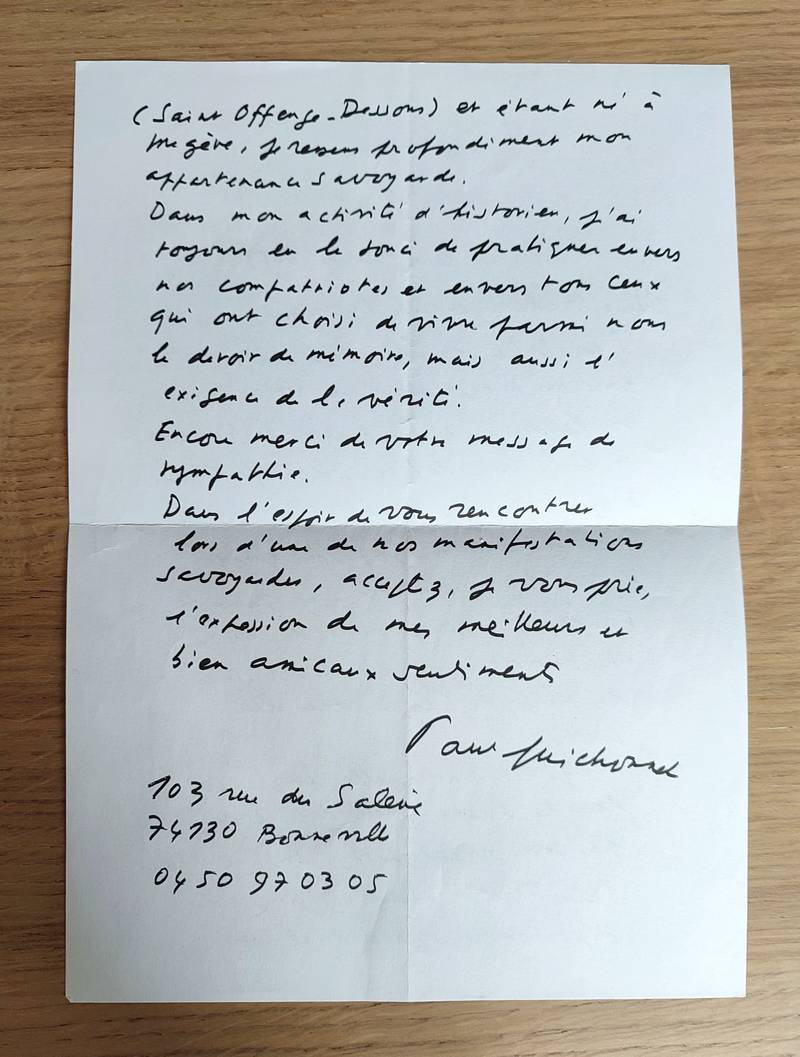 (Saint Offenge-Dessous) et étant né à
Megève, je ressens profondément mon
appartenance savoyarde.
Dans mon activité d'historien, j'ai
toujours eu le souci de pratiquer envers
nos compatriotes et envers tous ceux
qui ont choisi de vivre parmi nous
le devoir de mémoire, mais aussi l'
exigence de la vérité.
Encore merci de votre message de
sympathie.
Dans l'espoir de vous rencontrer
lors d'une de nos manifestations
savoyardes, acceptez, je vous prie,
l'expression de mes meilleurs et
bien amicaux sentiments
Paul Guichonnet
103 rue du Salève
74130 Bonneville
04 50 97 03 05